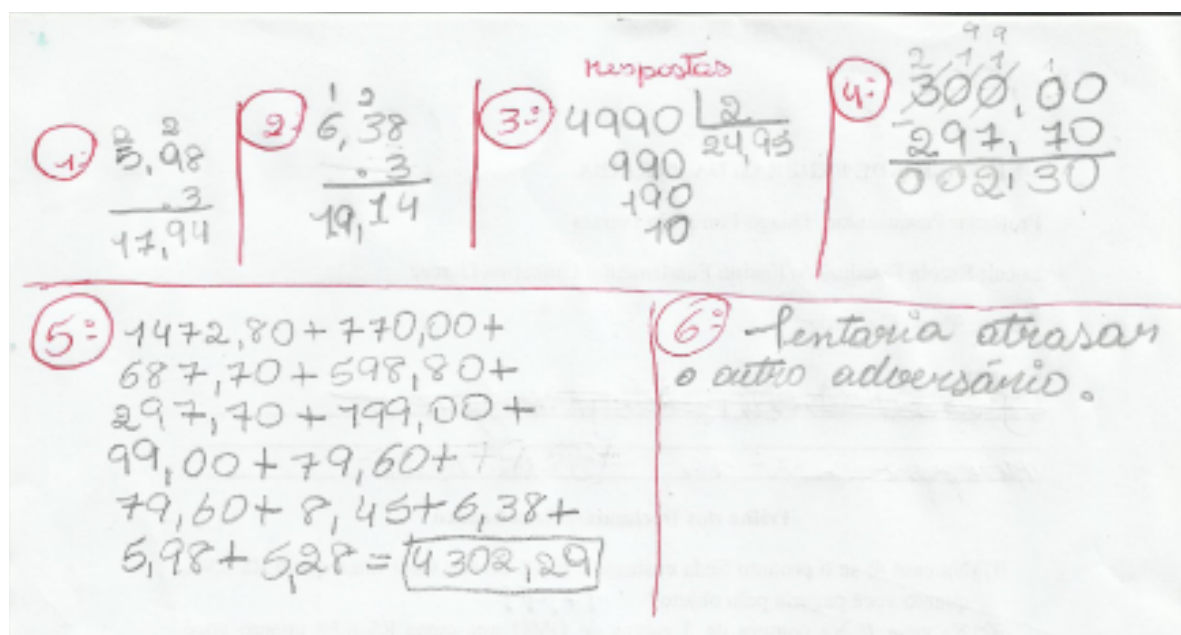 respostas
1ª
2 2
5,98
.3
17,94
2ª
1 2
6,38
.3
19,14
3ª
4990 2
990 24,95
190
10
4ª
9 9
2 1 1 1
300,00
-297,70
002,30
5ª
1472,80+770,00+
687,70+598,80+
297,70+199,00+
99,00+79,60+
79,60+8,45+6,38+
5,98+5,28=4302,29
6ª Tentaria atrasar
o outro adversário.